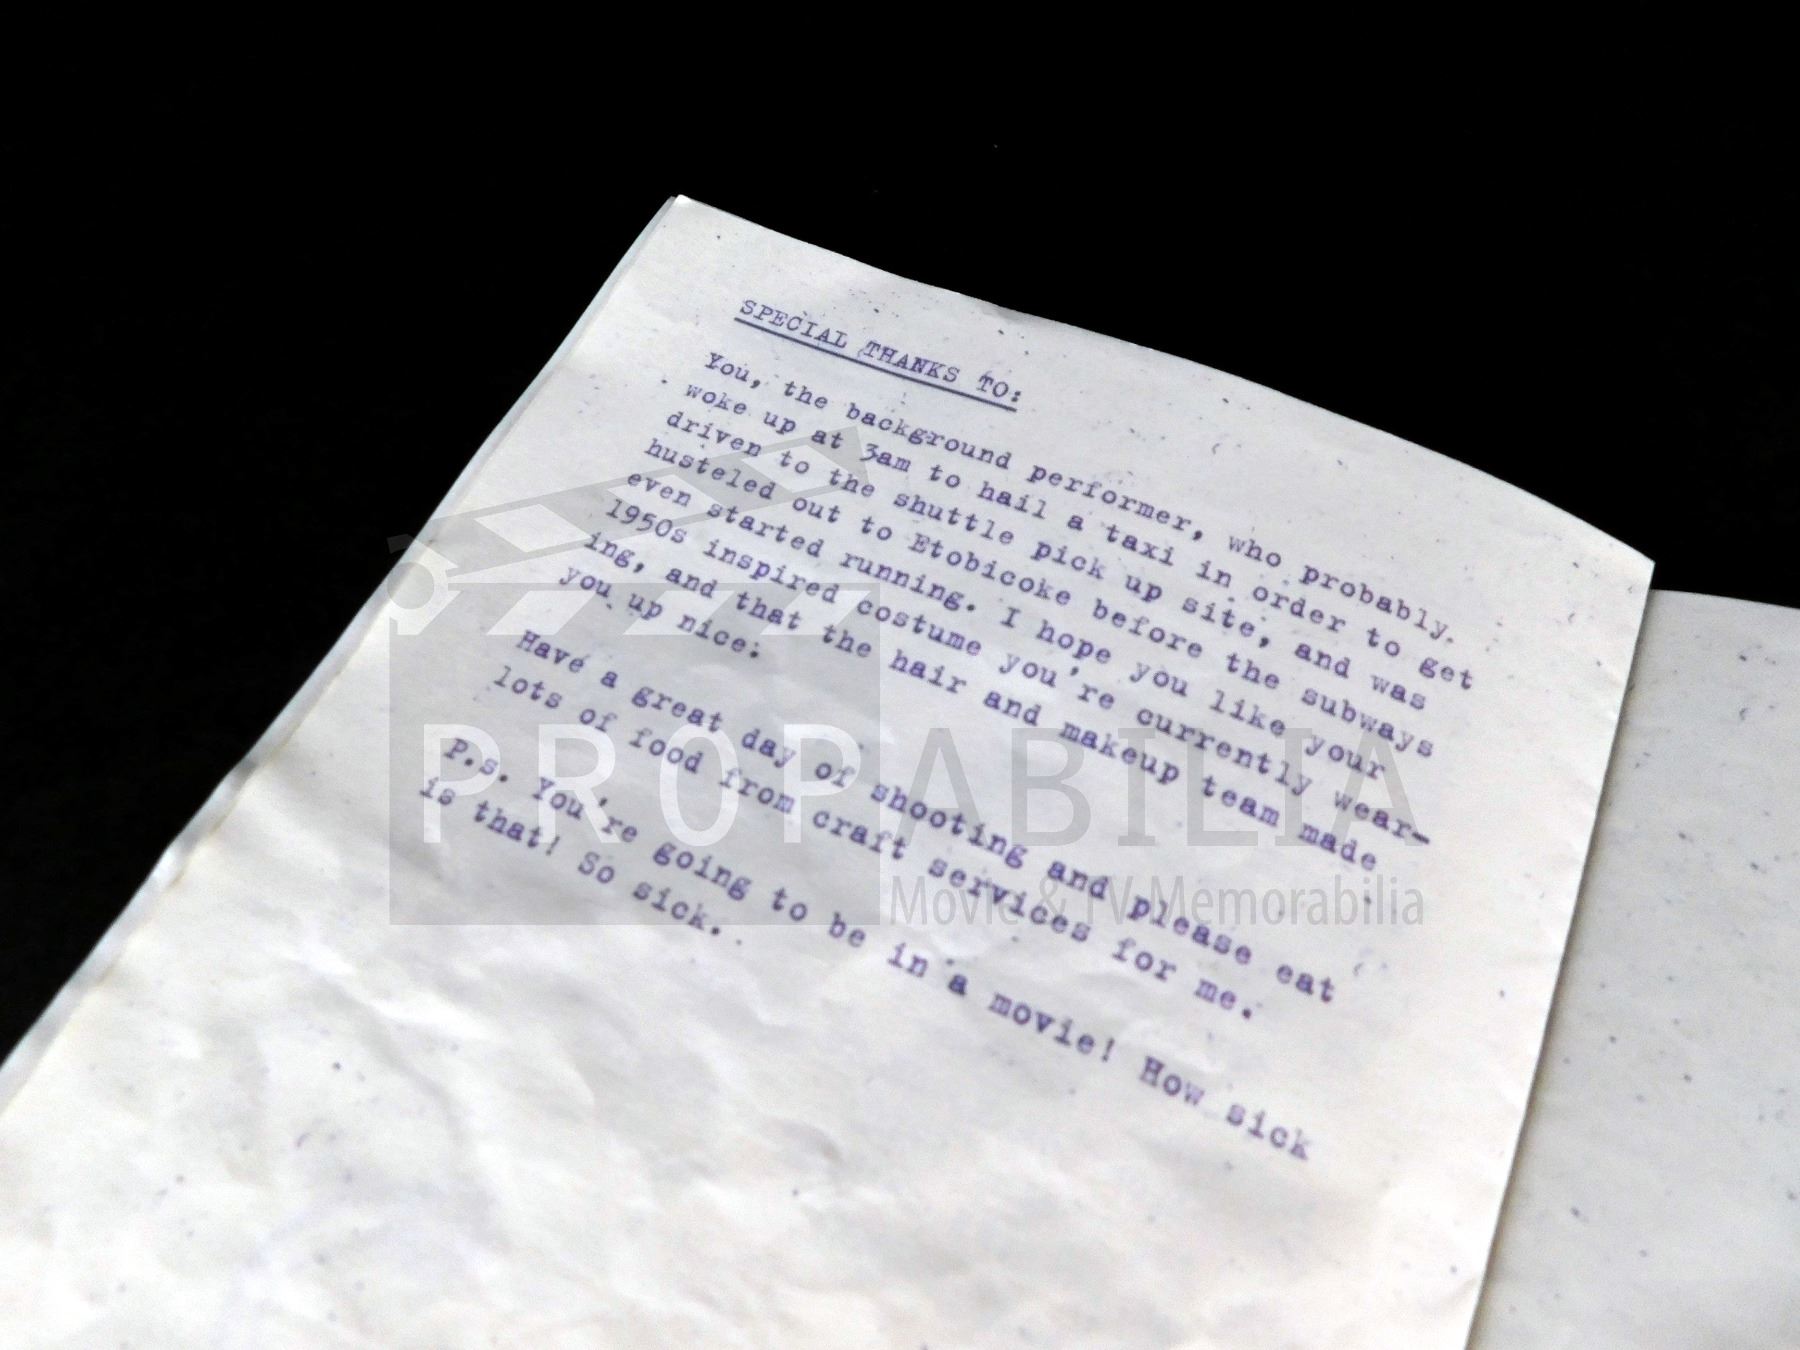 SPECIAL THANKS TO:
You, the background performer, who probably
woke up at 3am to hail a taxi in order to get
driven to the shuttle pick up site, and was
husteled out to Etobicoke before the subways
even started running. I hope you like your
1950s inspired costume you're currently wear-
ing, and that the hair and makeup team made
you up nice.
Have a great day of shooting and please eat
lots of food from craft services for me.
P.s. You're going to be in a movie! How sick
is that! So sick.
PROPABILIA
Movie & TV Memorabilia